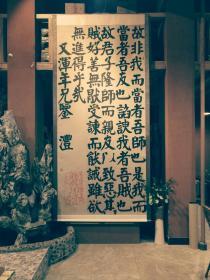 故非我而當者吾師也是我而
當者吾友也諂諛我者吾賊也
故君子隆師而親友以致惡其
賊好善無厭受諫而能誡雖欲
無進得乎哉
又渾年兄鑒 澧